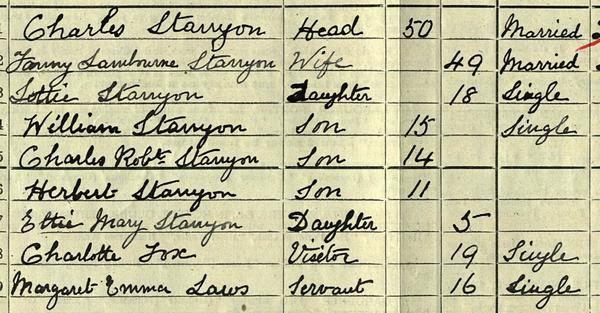 1 Charles Stanyon Head 50 Married
2 Fanny Sambourne Stanyon Wife 49 Married
3 Lottie Stanyon Daughter 18 Single
4 William Stanyon Son 15 Single
5 Charles Robt. Stanyon Son 14
6 Herbert Stanyon Son 11
7 Ettie Mary Stanyon Daughter 5
8 Charlotte Fox Visitor 19 Single
9 Margaret Emma Laws Servant 16 Single